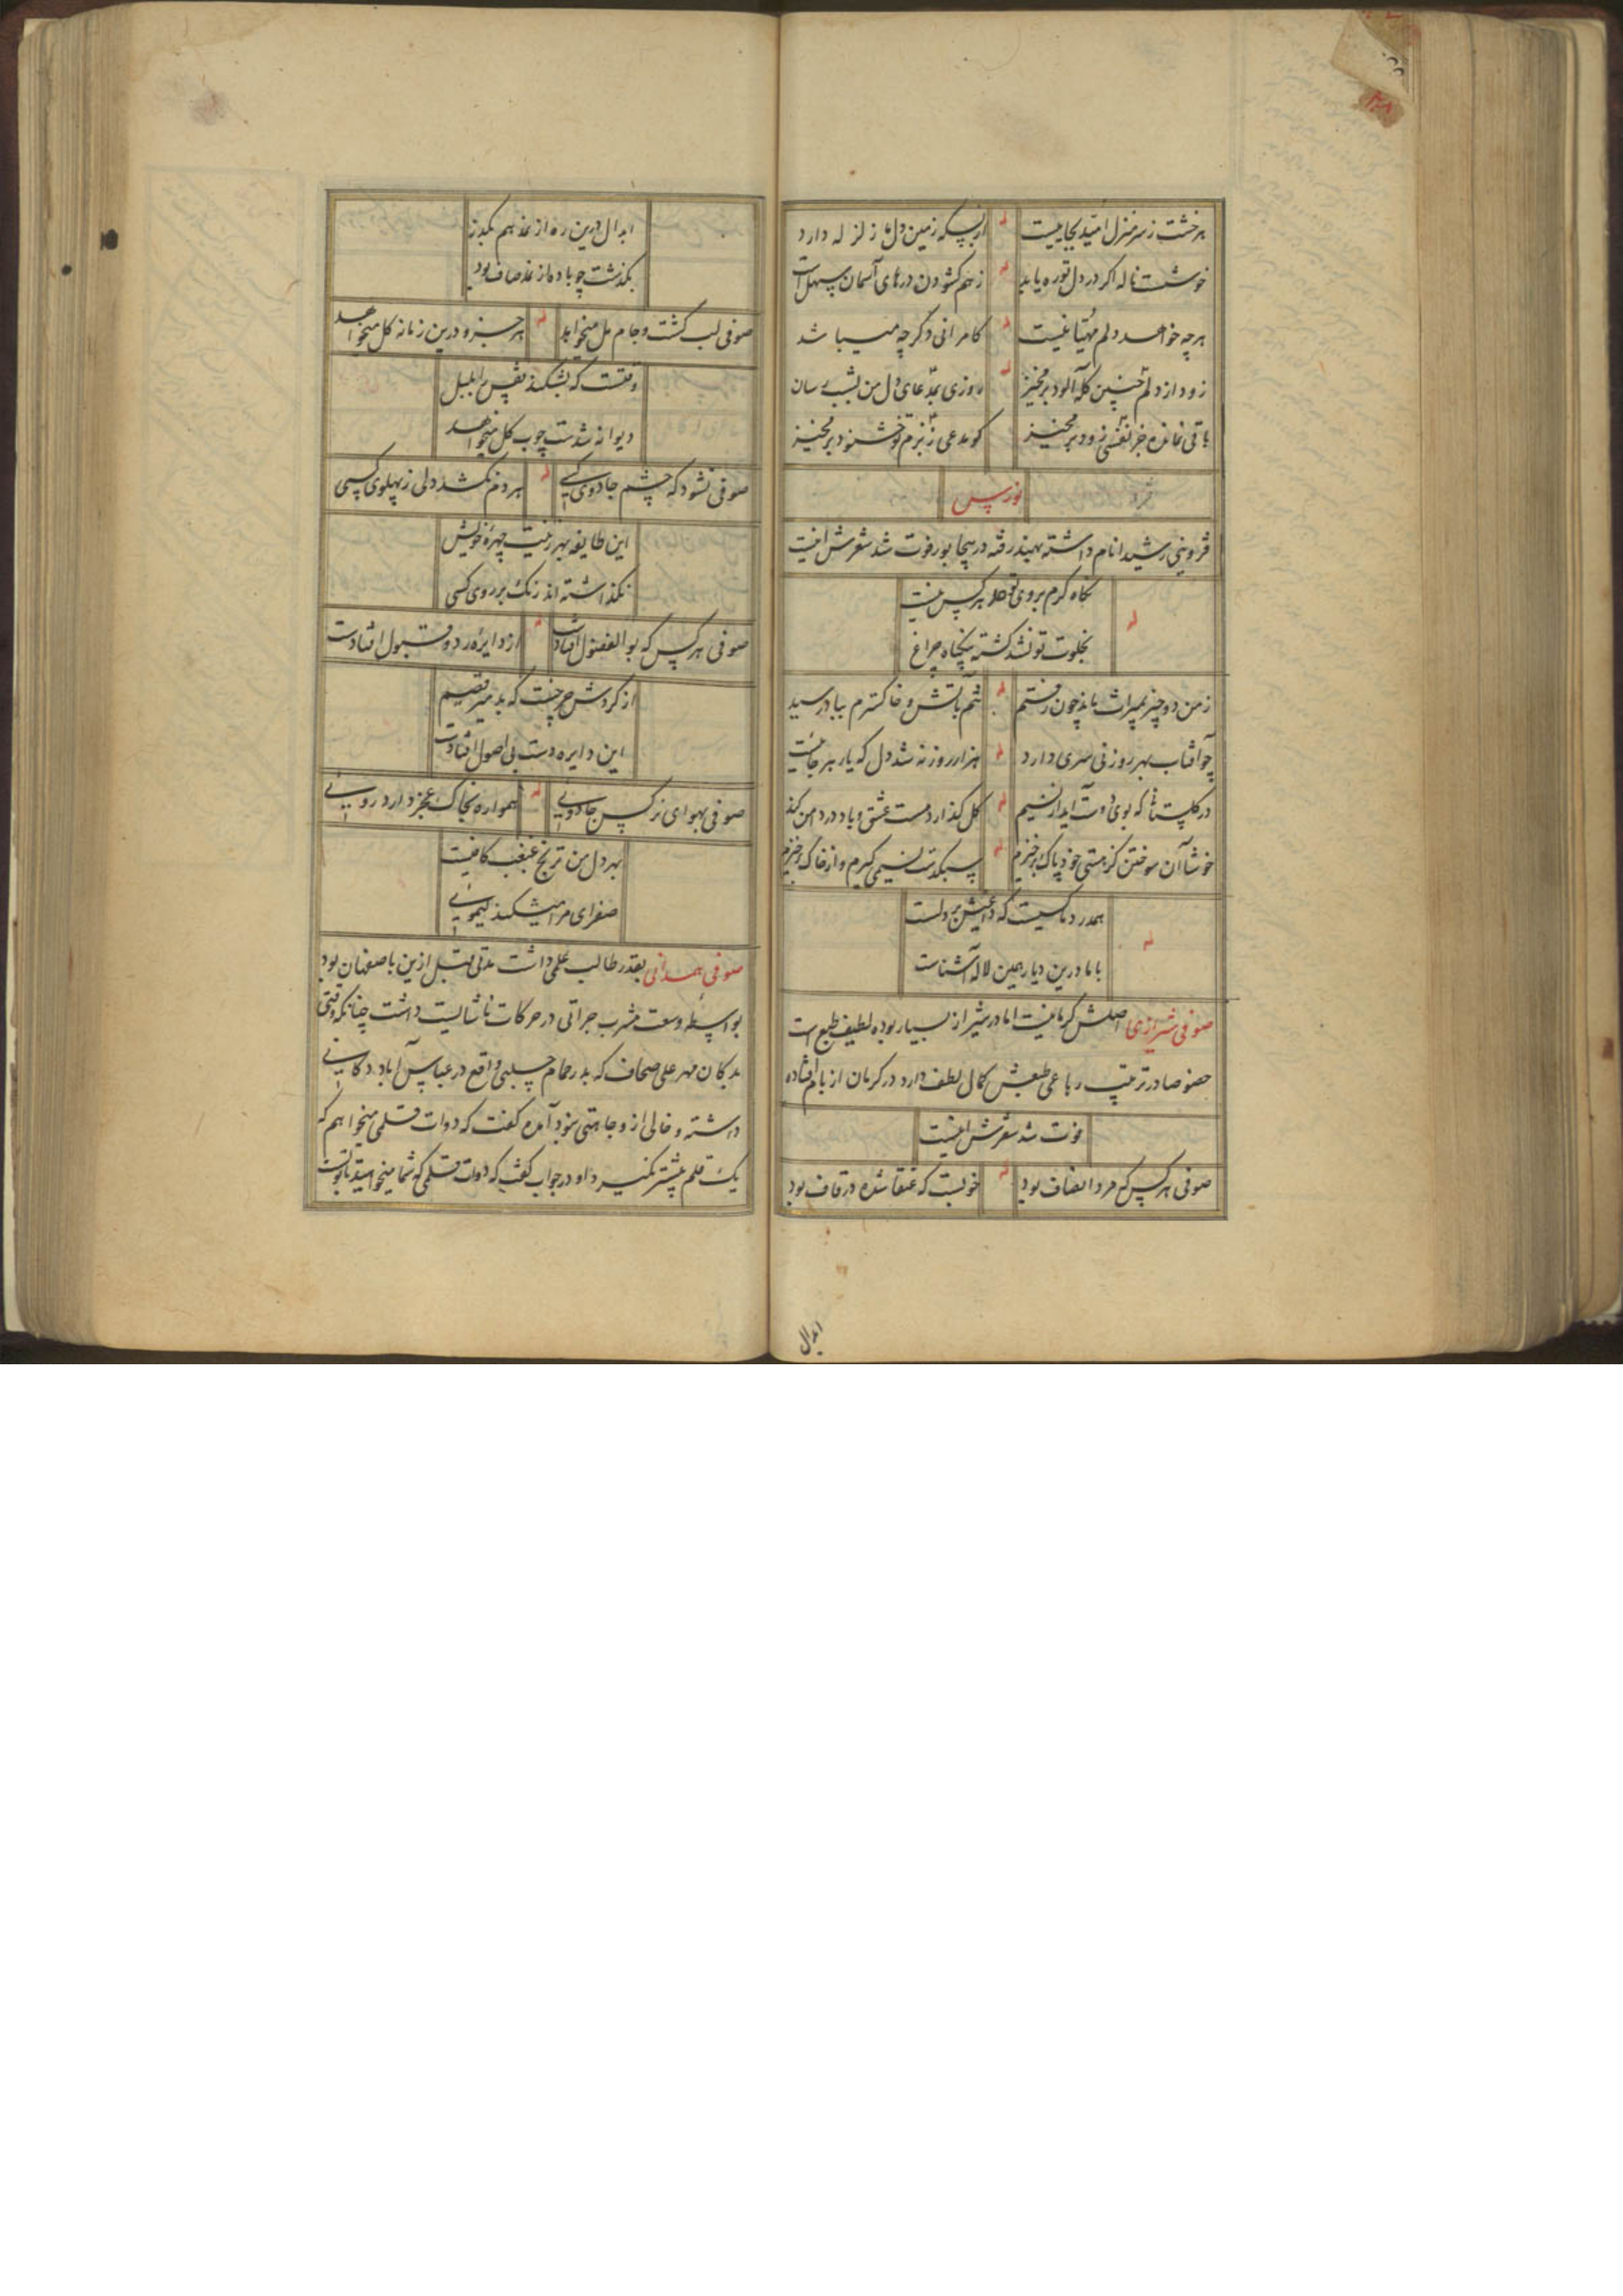 هر خشت ز سر منزل امید بجاییست له از بسکه زمین دل ما زلزله دارد
خوشست ناله اگر در دل تو ره یابد له ز هم گشودن درهای آسمان سهلست
هرچه خواهد دلم مهیا نیست له کامرانی دگر چه میباشد
زود از دلم چنین گله آلود برمخیز له روزی بمدعای دل من بشب رسان
باقی نمانده جز نفسی زود برمخیز کو مدعی ز بزم تو خشنود برمخیز
نورس
قزوینی رشیدا نام داشته بهند رفته در بیجاپور فوت شد شعرش اینست
نگاه گرم بروی تو حد هر کس نیست
له
بخلوت تو نشد کشته بیگناه چراغ
ز من دو چیز بمیراث ماند چون رفتم له تنم بآتش و خاکسترم بباد رسید
چو آفتاب بهر روزنی سری دارد له هزار روزنه شد دل که یار هر جائیست
در گلستانی که بوی دوست آید از نسیم له گل گذارد مست عشق و باد در دامن کند
خوشا آن سوختن کز هستی خود پاک برخیزم له سبکدست نسیمی گیرم و از خاک برخیزم
همدرد ما کسیست که داغیش بر دلست
له
با ما درین دیار همین لاله آشناست
صوفی شیرازی اصلش کرمانیست اما در شیراز بسیار بوده لطیف طبع است
خصوصا در ترتیب رباعی طبعش کمال لطف دارد در کرمان از بام افتاده
فوت شد شعرش اینست
صوفی هر کس که مرد انصاف بود له خونیست که عنقا شده در قاف بود
ابدال
ابدال درین ره از نمد هم بگذر
بگذشت چو باده از نمد صاف بود
صوفی لب کشت و جام مل میخواهد له هر جزو درین زمانه کل میخواهد
وقتست که بشکند قفس را بلبل
دیوانه شدست چوب گل میخواهد
صوفی نشود که چشم جادوی کسی له هر دم نکشد دلی ز پهلوی کسی
این طایفه بهر زینت چهره خویش
نگذاشته اند رنگ بر روی کسی
صوفی هر کس که بوالفضول افتادست له از دایره رد و قبول افتادست
از گردش چرخست که بد میرقصیم
این دایره دست بی اصول افتادست
صوفی بهوای نرگس جادویی له همواره بخاک عجز دارد رویی
بهر دل من ترنج غبغب کافیست
صفرای مرا میشکند لیمویی
صوفی همدانی بقدر طالب علمی داشت مدتی قبل ازین باصفهان بود
بواسطه وسعت مشرب جراتی در حرکات ناشایست داشت چنانکه وقتی
بدکان مهر علی صحاف که بدر حمام چلبی واقع در عباس آباد دکانی
داشته و خالی از وجاهتی نبود آمده گفت که دوات قلمی میخواهم که
یک قلم بیشتر نگیرد او در جواب گفت که دوات قلمی که شما میخواهید تابوتست